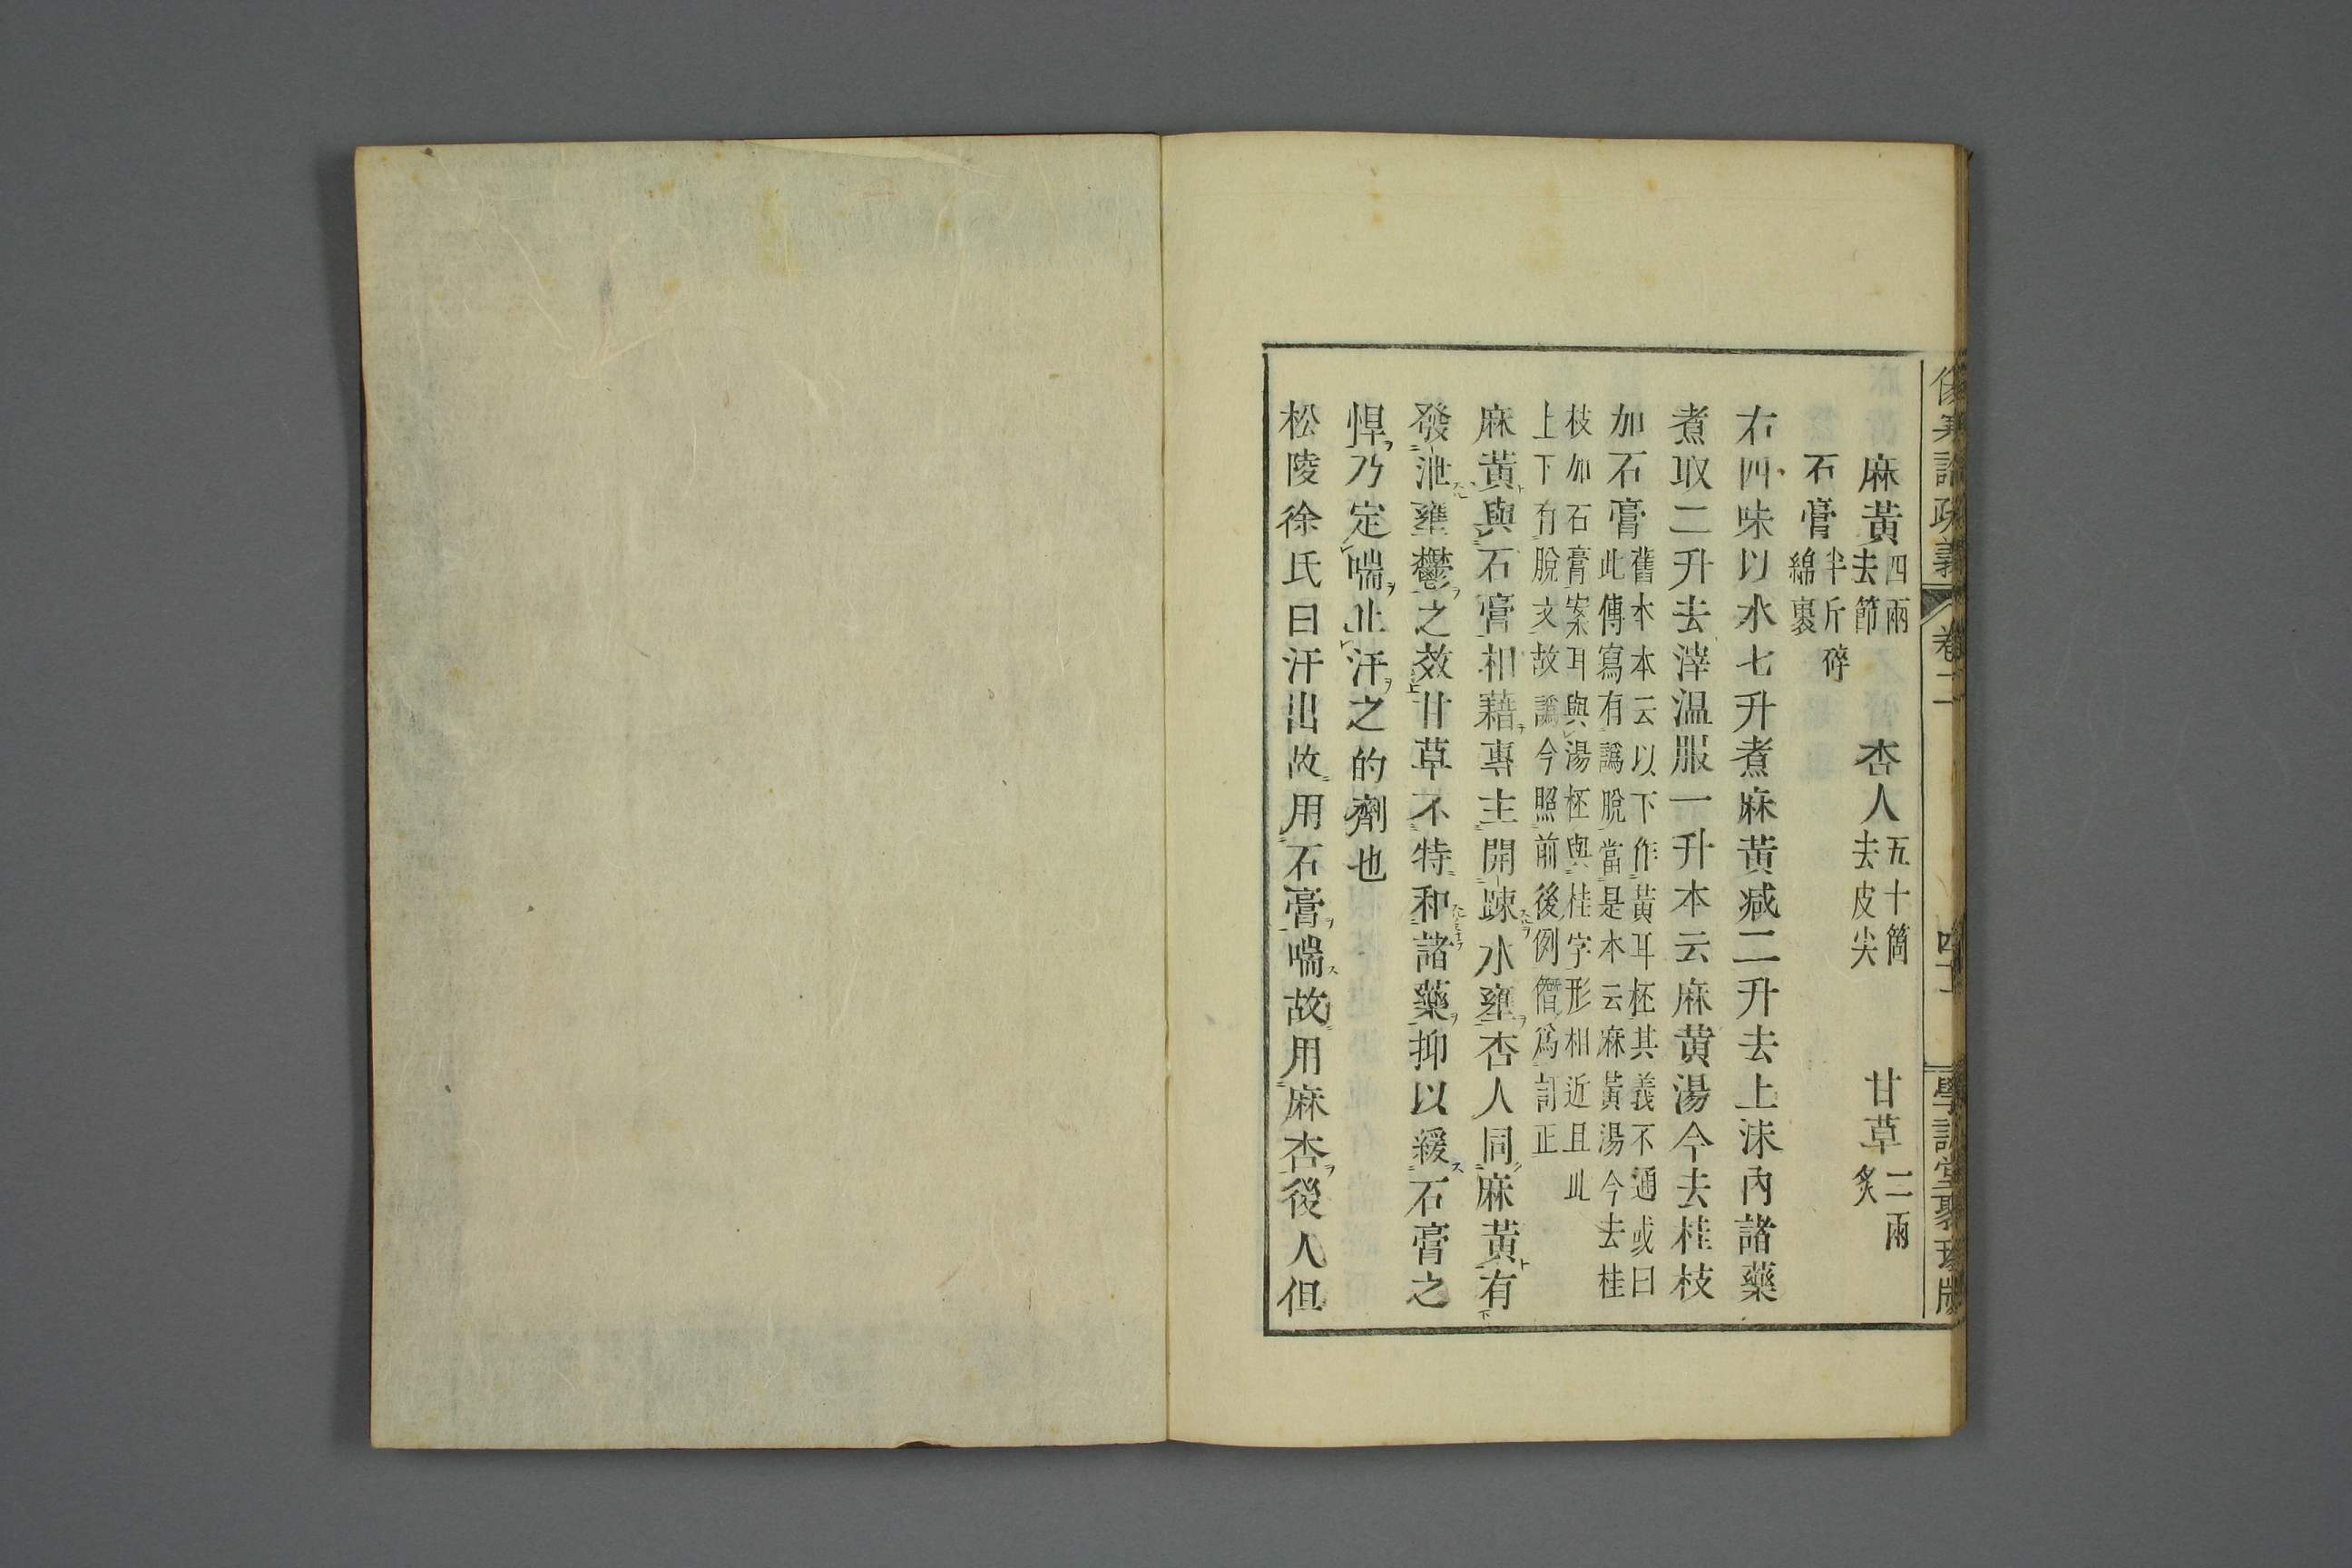 傷寒論疏義 卷二 學訓堂聚珍版
麻黃 四兩去節 杏人 五十箇去皮尖 甘草 二兩炙
石膏 半斤碎綿裹
右四味以水七升煮麻黃減二升去上沫內諸藥
煮取二升去滓温服一升本云麻黄湯今去桂枝
加石膏
舊本本云以下作黃耳柸其義不通或曰
此傳寫有譌脫當是本云麻黃湯今去桂
枝加石膏案耳與湯柸與桂字形相近且此
上下有脫文故譌今照前後例僭爲訂正
麻黃與石膏相藉專主開踈水壅杏人同麻黃有
發泄壅鬱之效甘草不特和諸藥抑以緩石膏之
悍乃定喘止汗之的劑也
松陵徐氏曰汗出故用石膏喘故用麻杏後人但